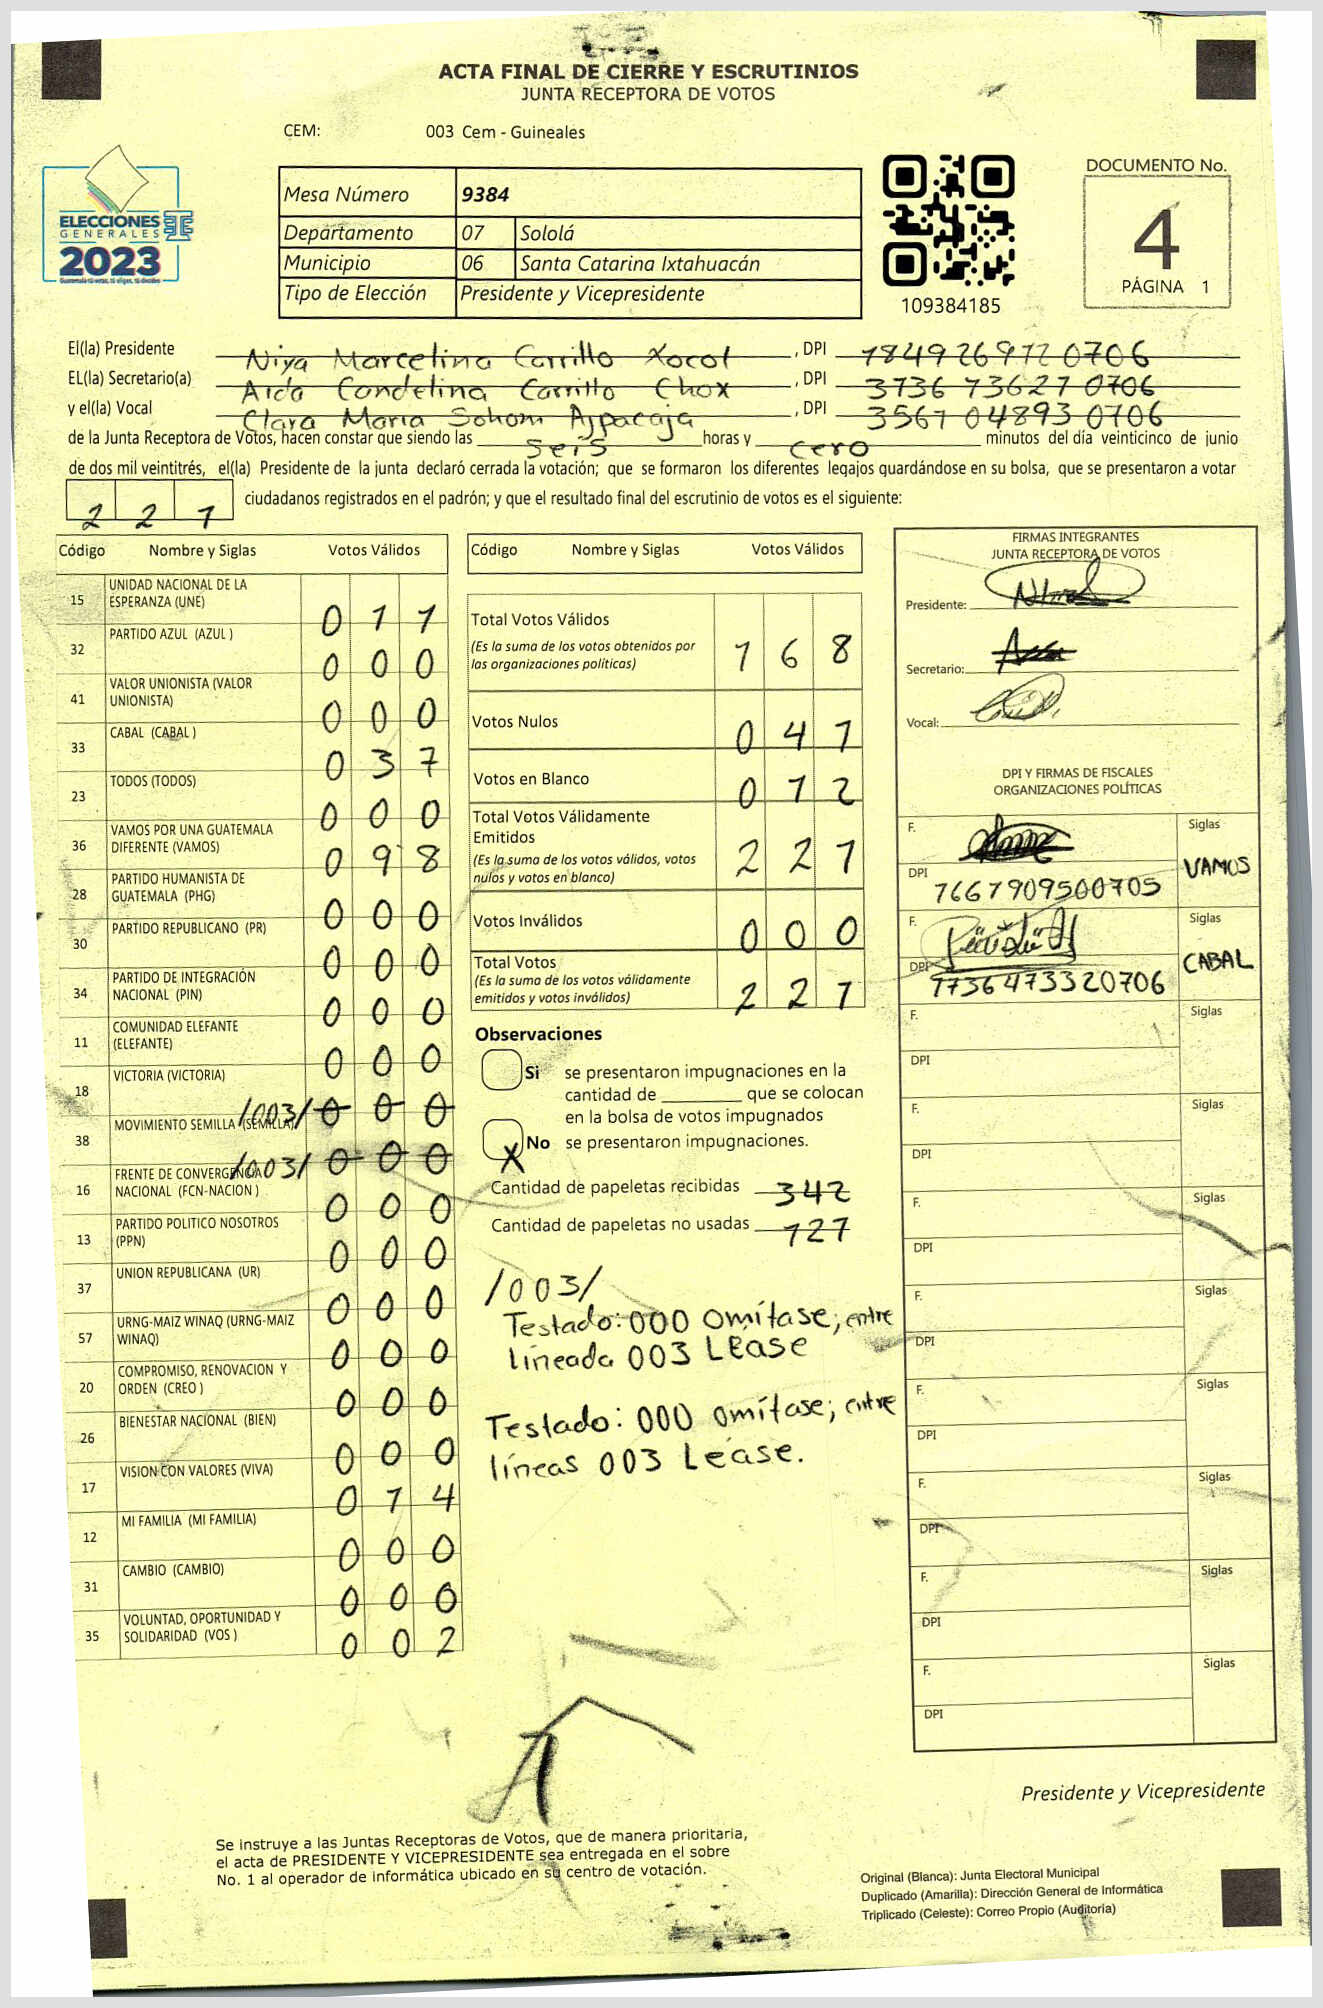 ACTA FINAL DE CIERRE Y ESCRUTINIOS
JUNTA RECEPTORA DE VOTOS
CEM: 003 Cem - Guineales
ELECCIONES
GENERALES
2023
Mesa Número 9384
Departamento 07 Sololá
Municipio 06 Santa Catarina Ixtahuacán
Tipo de Elección Presidente y Vicepresidente
109384185
DOCUMENTO No.
4
PÁGINA 1
El(la) Presidente Niya Marcelina Carrillo Xocol, DPI 1849269720706
EL(la) Secretario(a) Aida Candelina Carrillo Chox, DPI 3736 73627 0706
y el(la) Vocal Clara Maria Sohom Ajpacaja, DPI 3567 04893 0706
de la Junta Receptora de Votos, hacen constar que siendo las seis horas y cero minutos del día veinticinco de junio
de dos mil veintitrés, el(la) Presidente de la junta declaró cerrada la votación; que se formaron los diferentes legajos guardándose en su bolsa, que se presentaron a votar
221 ciudadanos registrados en el padrón; y que el resultado final del escrutinio de votos es el siguiente:
Código Nombre y Siglas Votos Válidos
15 UNIDAD NACIONAL DE LA ESPERANZA (UNE) 0 1 1
32 PARTIDO AZUL (AZUL ) 0 0 0
41 VALOR UNIONISTA (VALOR UNIONISTA) 0 0 0
33 CABAL (CABAL ) 0 3 7
23 TODOS (TODOS) 0 0 0
36 VAMOS POR UNA GUATEMALA DIFERENTE (VAMOS) 0 9 8
28 PARTIDO HUMANISTA DE GUATEMALA (PHG) 0 0 0
30 PARTIDO REPUBLICANO (PR) 0 0 0
34 PARTIDO DE INTEGRACIÓN NACIONAL (PIN) 0 0 0
11 COMUNIDAD ELEFANTE (ELEFANTE) 0 0 0
18 VICTORIA (VICTORIA) /003/ 0 0 0
38 MOVIMIENTO SEMILLA (SEMILLA) /003/ 0 0 0
16 FRENTE DE CONVERGENCIA NACIONAL (FCN-NACION ) 0 0 0
13 PARTIDO POLITICO NOSOTROS (PPN) 0 0 0
37 UNION REPUBLICANA (UR) 0 0 0
57 URNG-MAIZ WINAQ (URNG-MAIZ WINAQ) 0 0 0
20 COMPROMISO, RENOVACION Y ORDEN (CREO ) 0 0 0
26 BIENESTAR NACIONAL (BIEN) 0 0 0
17 VISION CON VALORES (VIVA) 0 1 4
12 MI FAMILIA (MI FAMILIA) 0 0 0
31 CAMBIO (CAMBIO) 0 0 0
35 VOLUNTAD, OPORTUNIDAD Y SOLIDARIDAD (VOS ) 0 0 2
Código Nombre y Siglas Votos Válidos
Total Votos Válidos 1 6 8
(Es la suma de los votos obtenidos por
las organizaciones políticas)
Votos Nulos 0 4 1
Votos en Blanco 0 1 2
Total Votos Válidamente
Emitidos 2 2 1
(Es la suma de los votos válidos, votos
nulos y votos en blanco)
Votos Inválidos 0 0 0
Total Votos 2 2 1
(Es la suma de los votos válidamente
emitidos y votos inválidos)
Observaciones
Si se presentaron impugnaciones en la
cantidad de ________ que se colocan
en la bolsa de votos impugnados
X No se presentaron impugnaciones.
Cantidad de papeletas recibidas 342
Cantidad de papeletas no usadas 121
/003/
Testado: 000 omítase; entre
líneada 003 Lease
Testado: 000 omítase; entre
líneas 003 Léase.
FIRMAS INTEGRANTES
JUNTA RECEPTORA DE VOTOS
Presidente:
Secretario:
Vocal:
DPI Y FIRMAS DE FISCALES
ORGANIZACIONES POLÍTICAS
F. Siglas
DPI 1661909500705 VAMOS
F. Siglas
DPI 1736473320706 CABAL
F. Siglas
DPI
F. Siglas
DPI
F. Siglas
DPI
F. Siglas
DPI
F. Siglas
DPI
F. Siglas
DPI
F. Siglas
DPI
F. Siglas
DPI
Presidente y Vicepresidente
Se instruye a las Juntas Receptoras de Votos, que de manera prioritaria,
el acta de PRESIDENTE Y VICEPRESIDENTE sea entregada en el sobre
No. 1 al operador de informática ubicado en su centro de votación.
Original (Blanca): Junta Electoral Municipal
Duplicado (Amarilla): Dirección General de Informática
Triplicado (Celeste): Correo Propio (Auditoría)